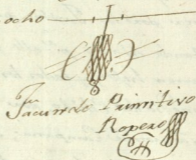 ocho
Facundo Primitivo
Ropero